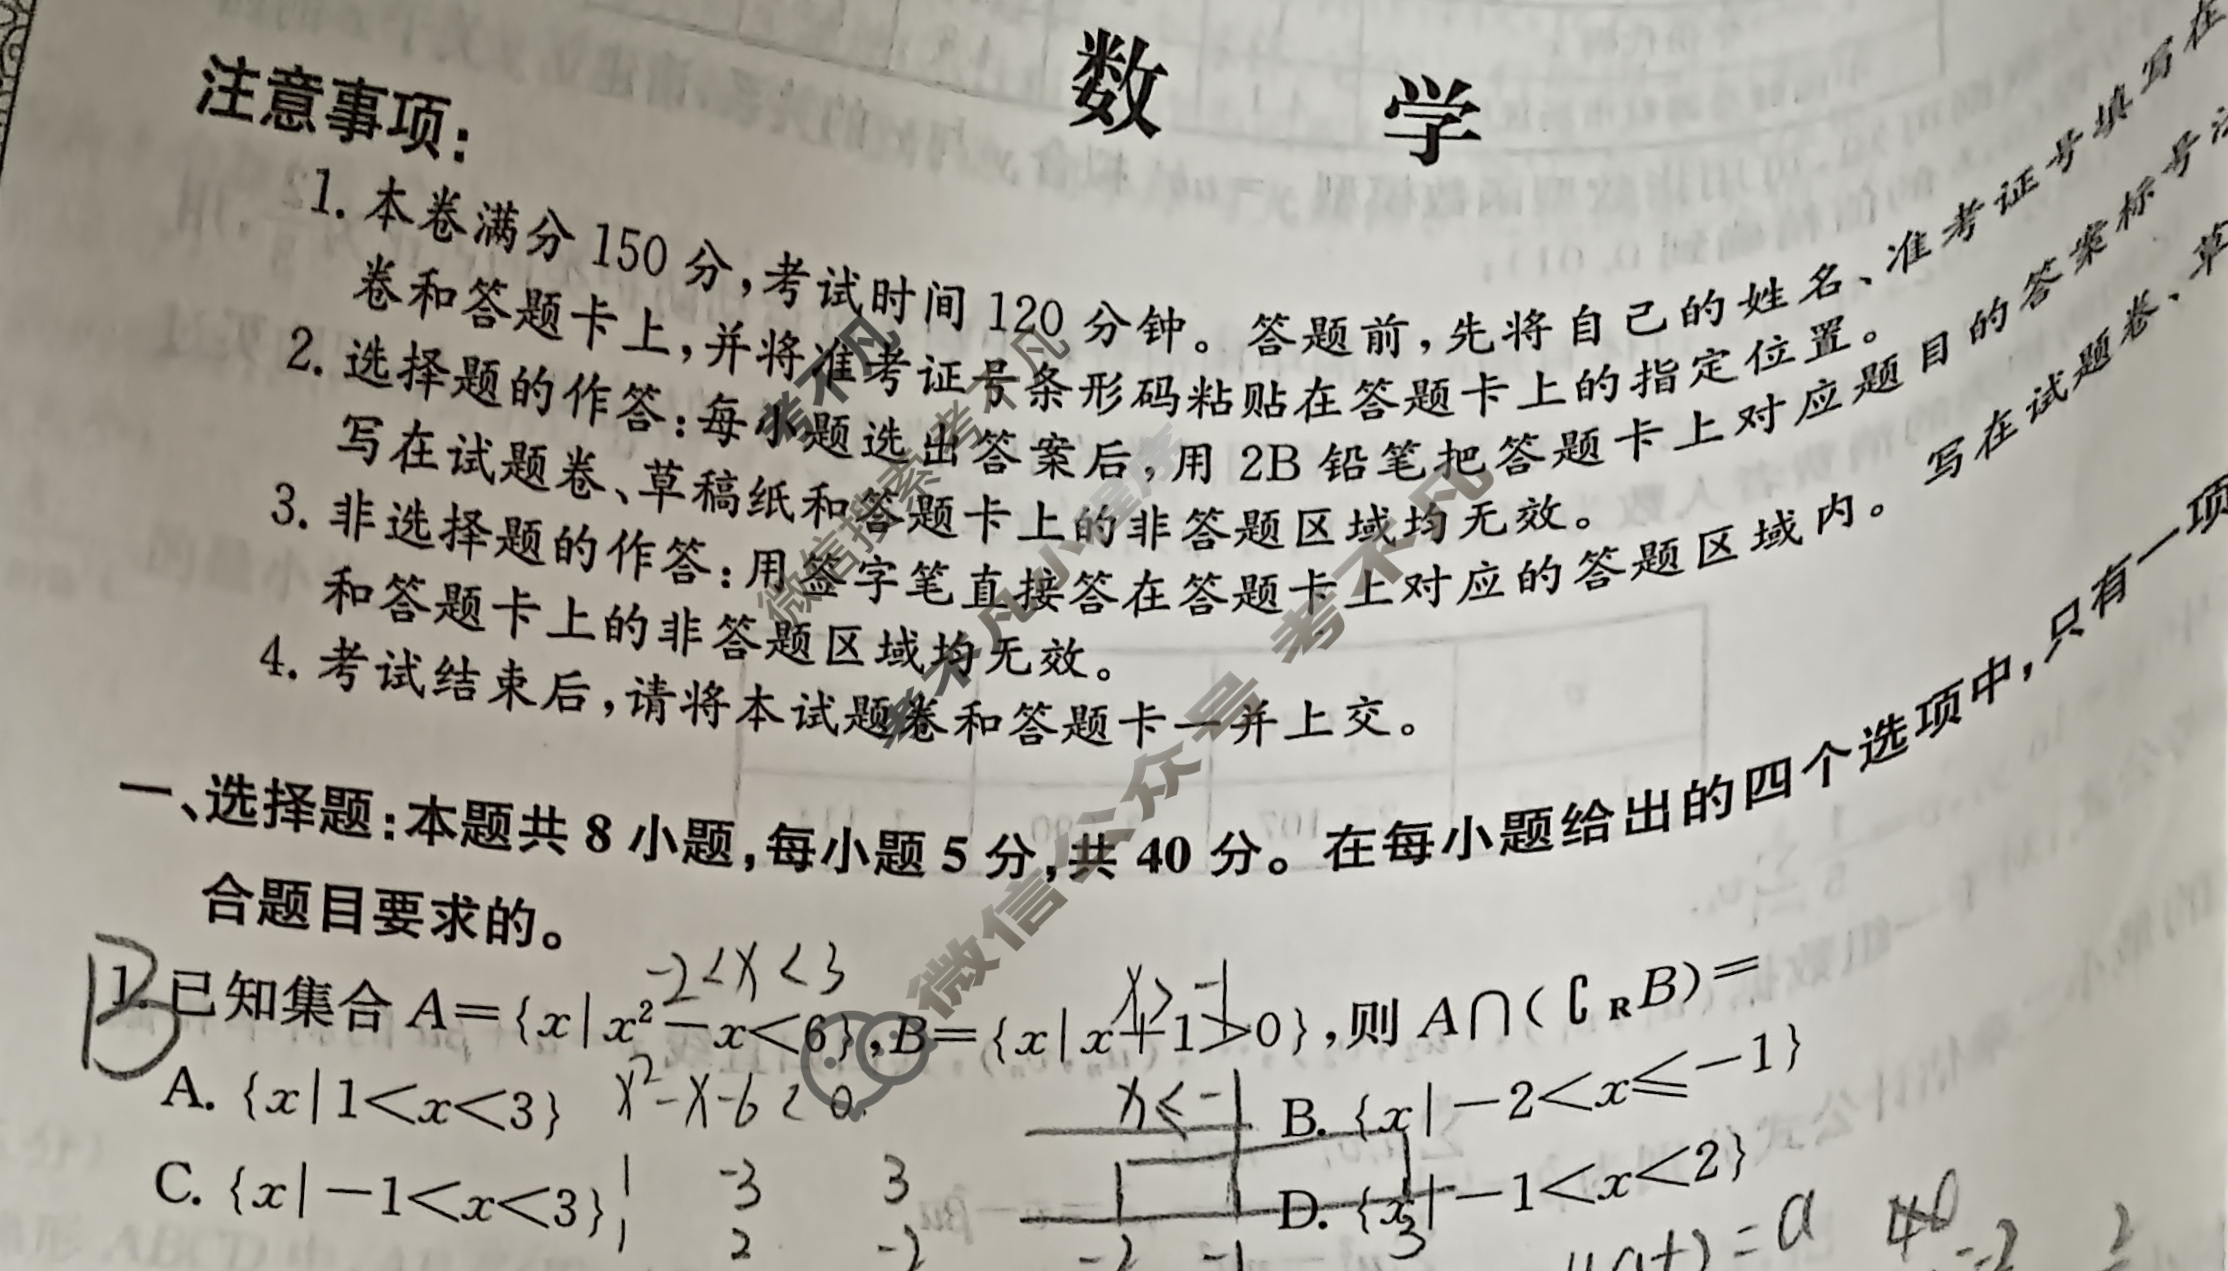 数 学
注意事项：
1. 本卷满分 150 分，考试时间 120 分钟。答题前，先将自己的姓名、准考证号填写在
卷和答题卡上，并将准考证号条形码粘贴在答题卡上的指定位置。
2. 选择题的作答：每小题选出答案后，用 2B 铅笔把答题卡上对应题目的答案标号
写在试题卷、草稿纸和答题卡上的非答题区域均无效。
3. 非选择题的作答：用签字笔直接答在答题卡上对应的答题区域内。写在试题卷、草
和答题卡上的非答题区域均无效。
4. 考试结束后，请将本试题卷和答题卡一并上交。
考不凡
微信搜索 考不凡
考不凡小程序
微信公众号 考不凡
一、选择题：本题共 8 小题，每小题 5 分，共 40 分。在每小题给出的四个选项中，只有一项
合题目要求的。
-2<x<3 x>-1
B
1. 已知集合 A={x|x²-x<6}，B={x|x+1>0}，则 A∩(∁ᴿB)=
A. {x|1<x<3} x²-x-6<0 x≤-1 B. {x|-2<x≤-1}
C. {x|-1<x<3} D. {x|-1<x<2}
1 -3 3
1 2 -2 -2 -1 3
=a 40
-2 2